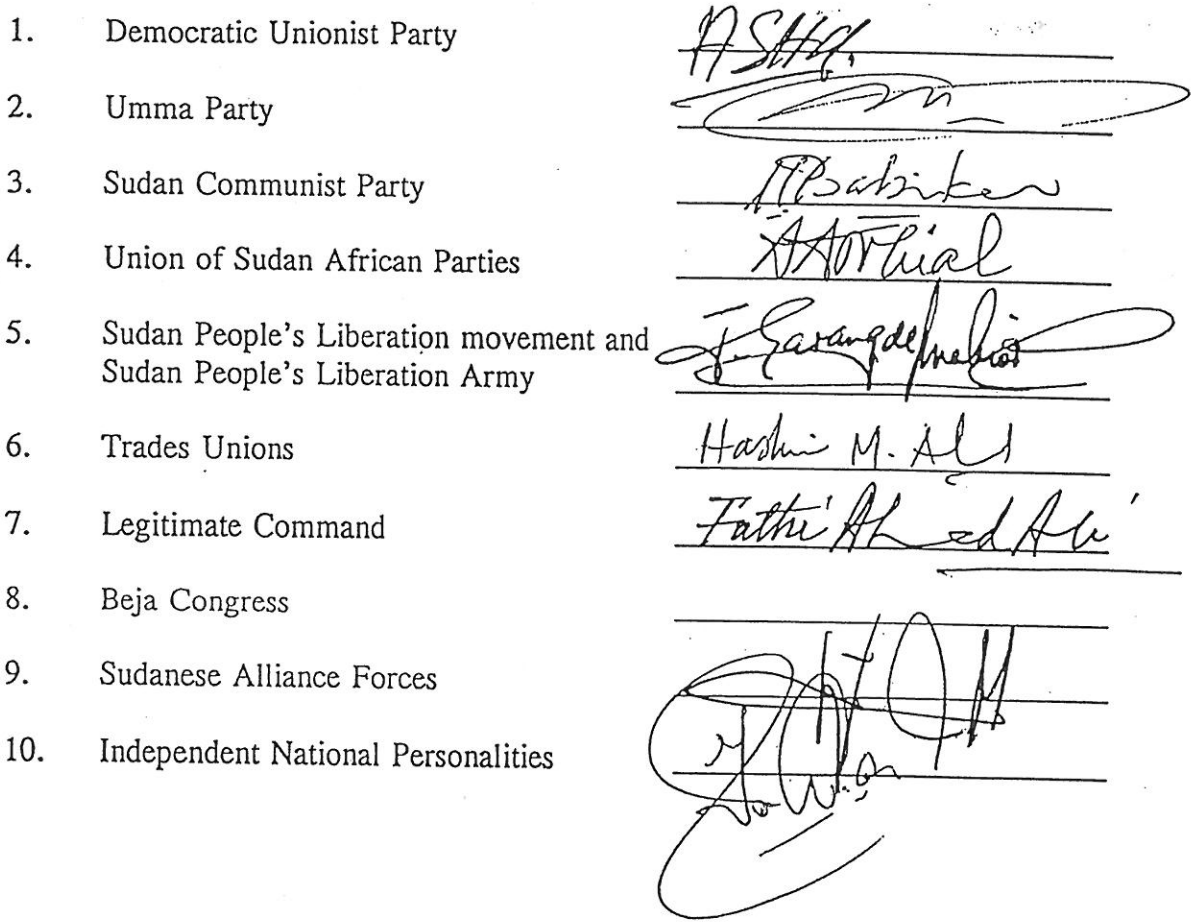 1. Democratic Unionist Party
2. Umma Party
3. Sudan Communist Party
4. Union of Sudan African Parties
5. Sudan People's Liberation movement and J. Garang de Mabior
Sudan People's Liberation Army
6. Trades Unions M. Ali
7. Legitimate Command Fathi Ahmed Ali
8. Beja Congress
9. Sudanese Alliance Forces
10. Independent National Personalities